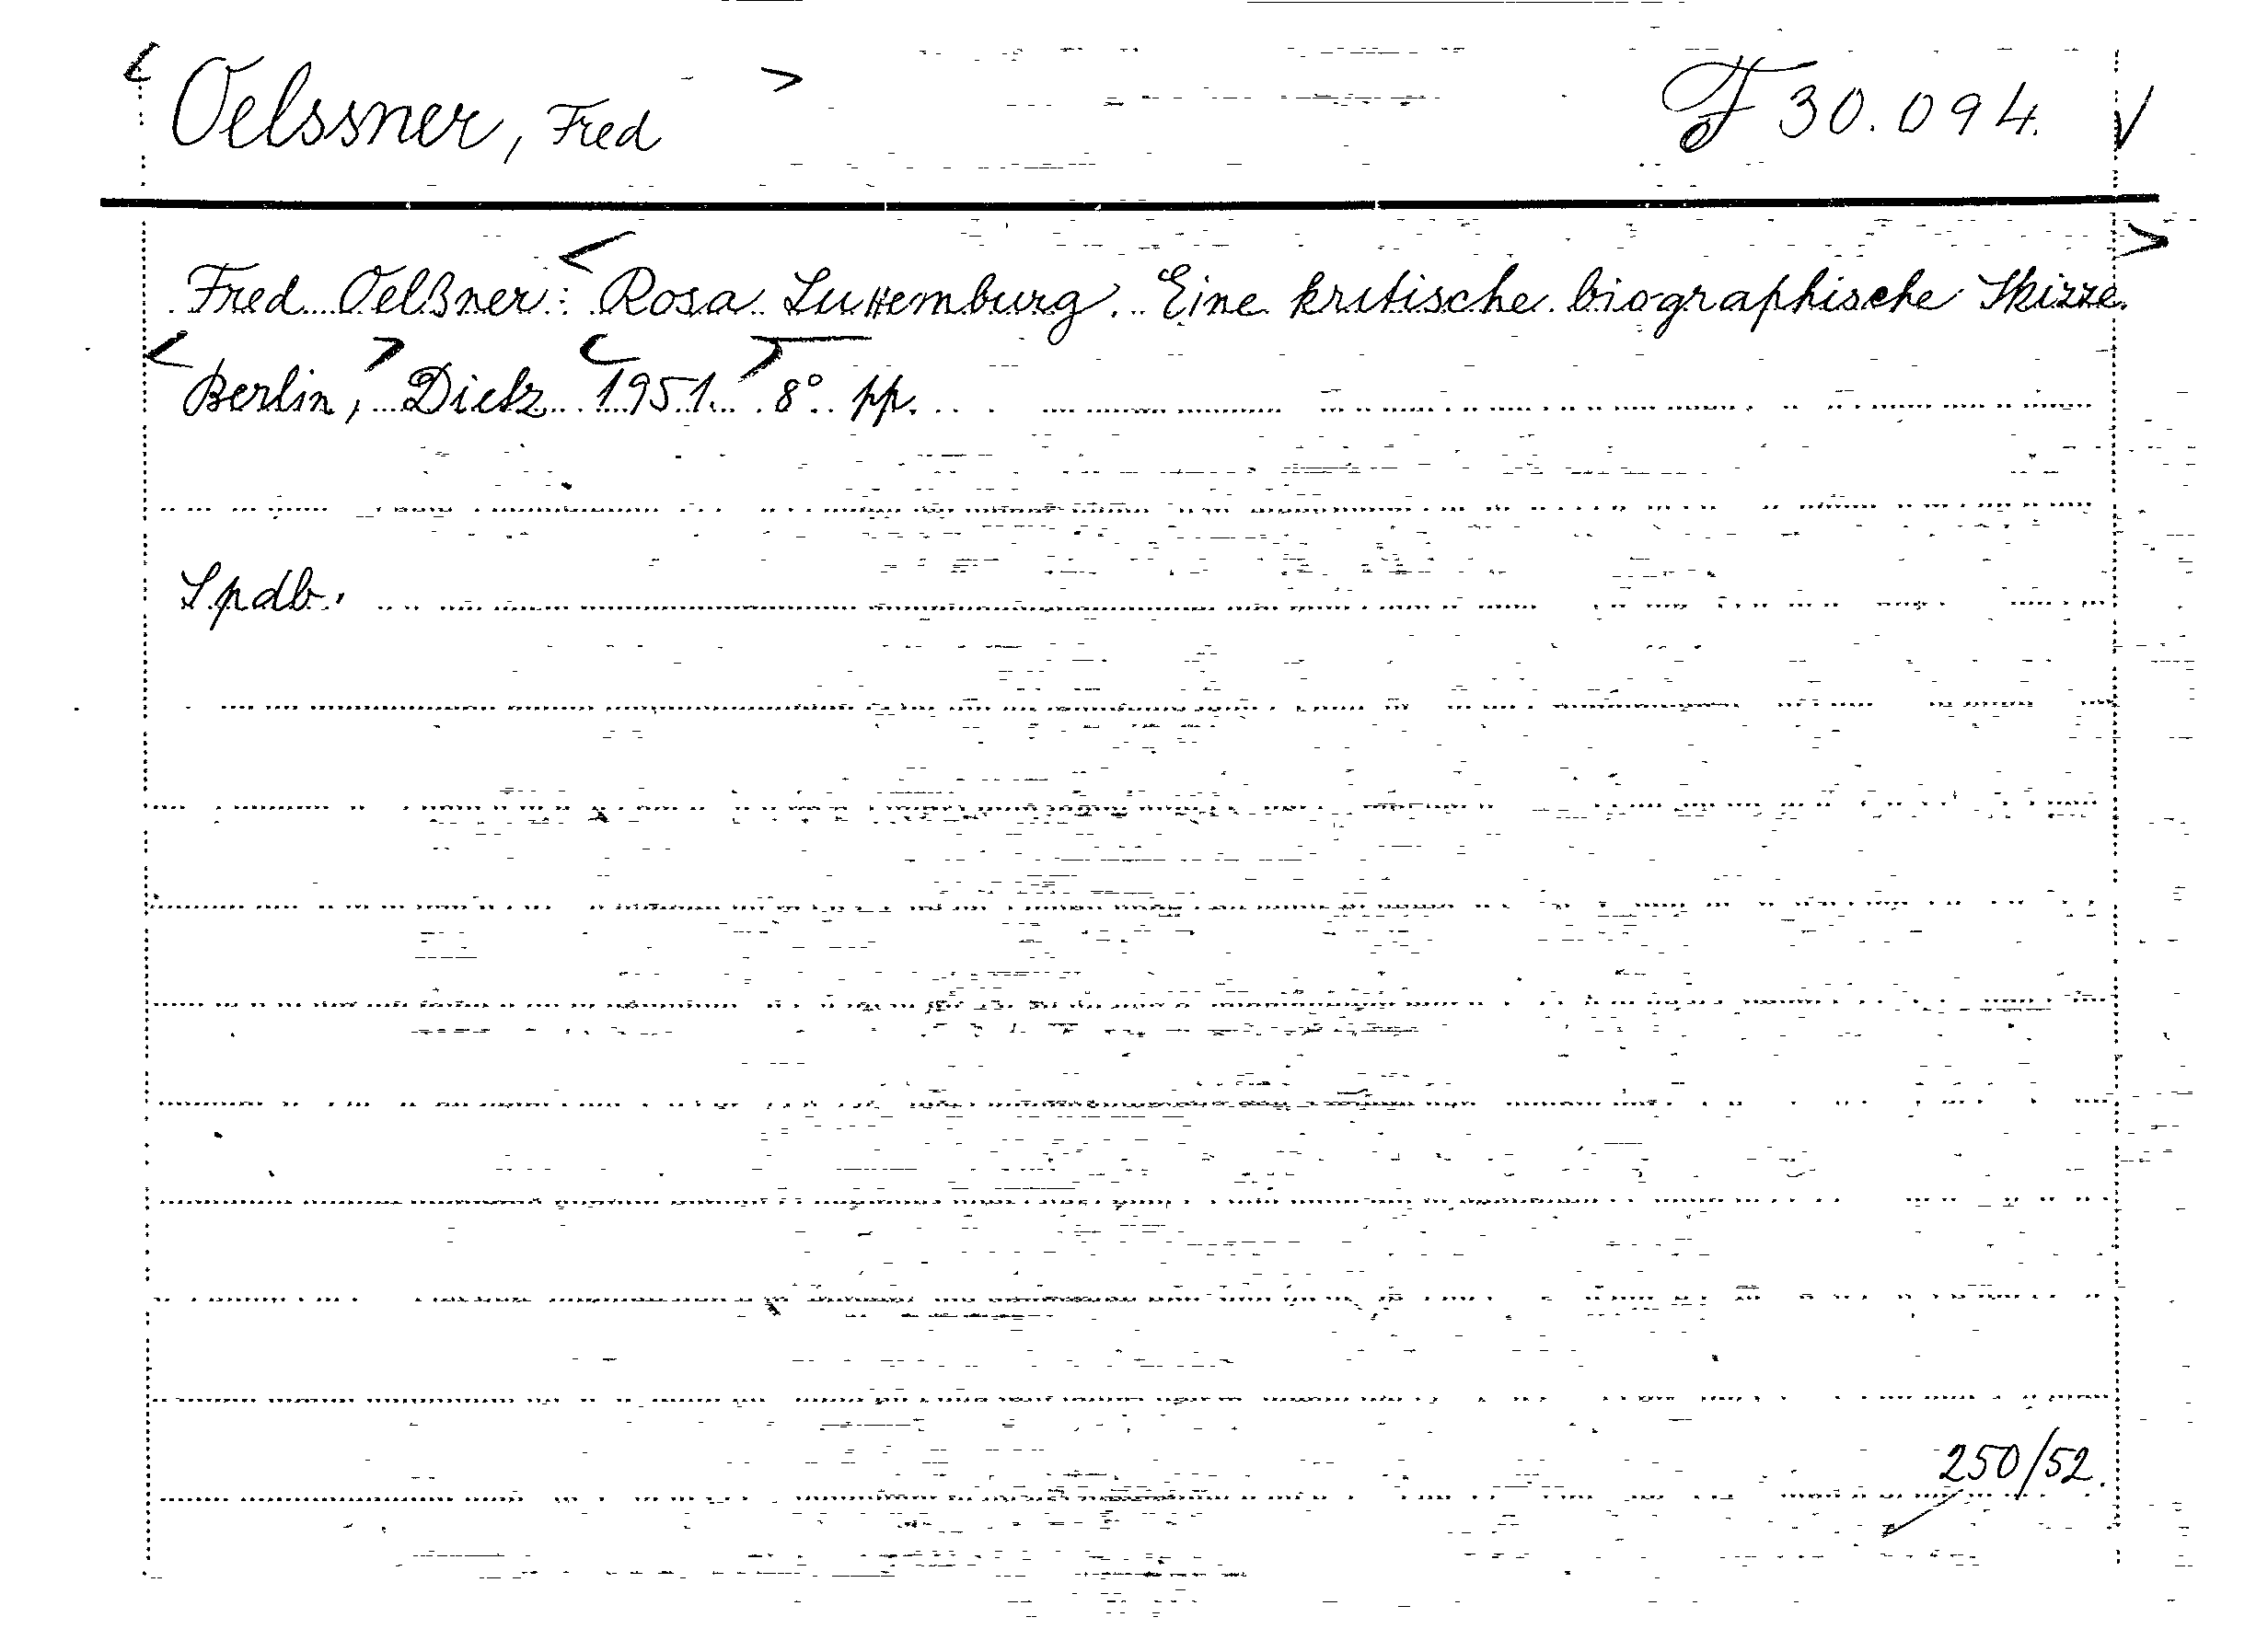 Oelssner, Fred F 30.094.
Fred Oelßner: Rosa Luxemburg. Eine kritische biographische Skizze.
Berlin, Dietz 1951. 8° pp.
Spdb.
250/52.